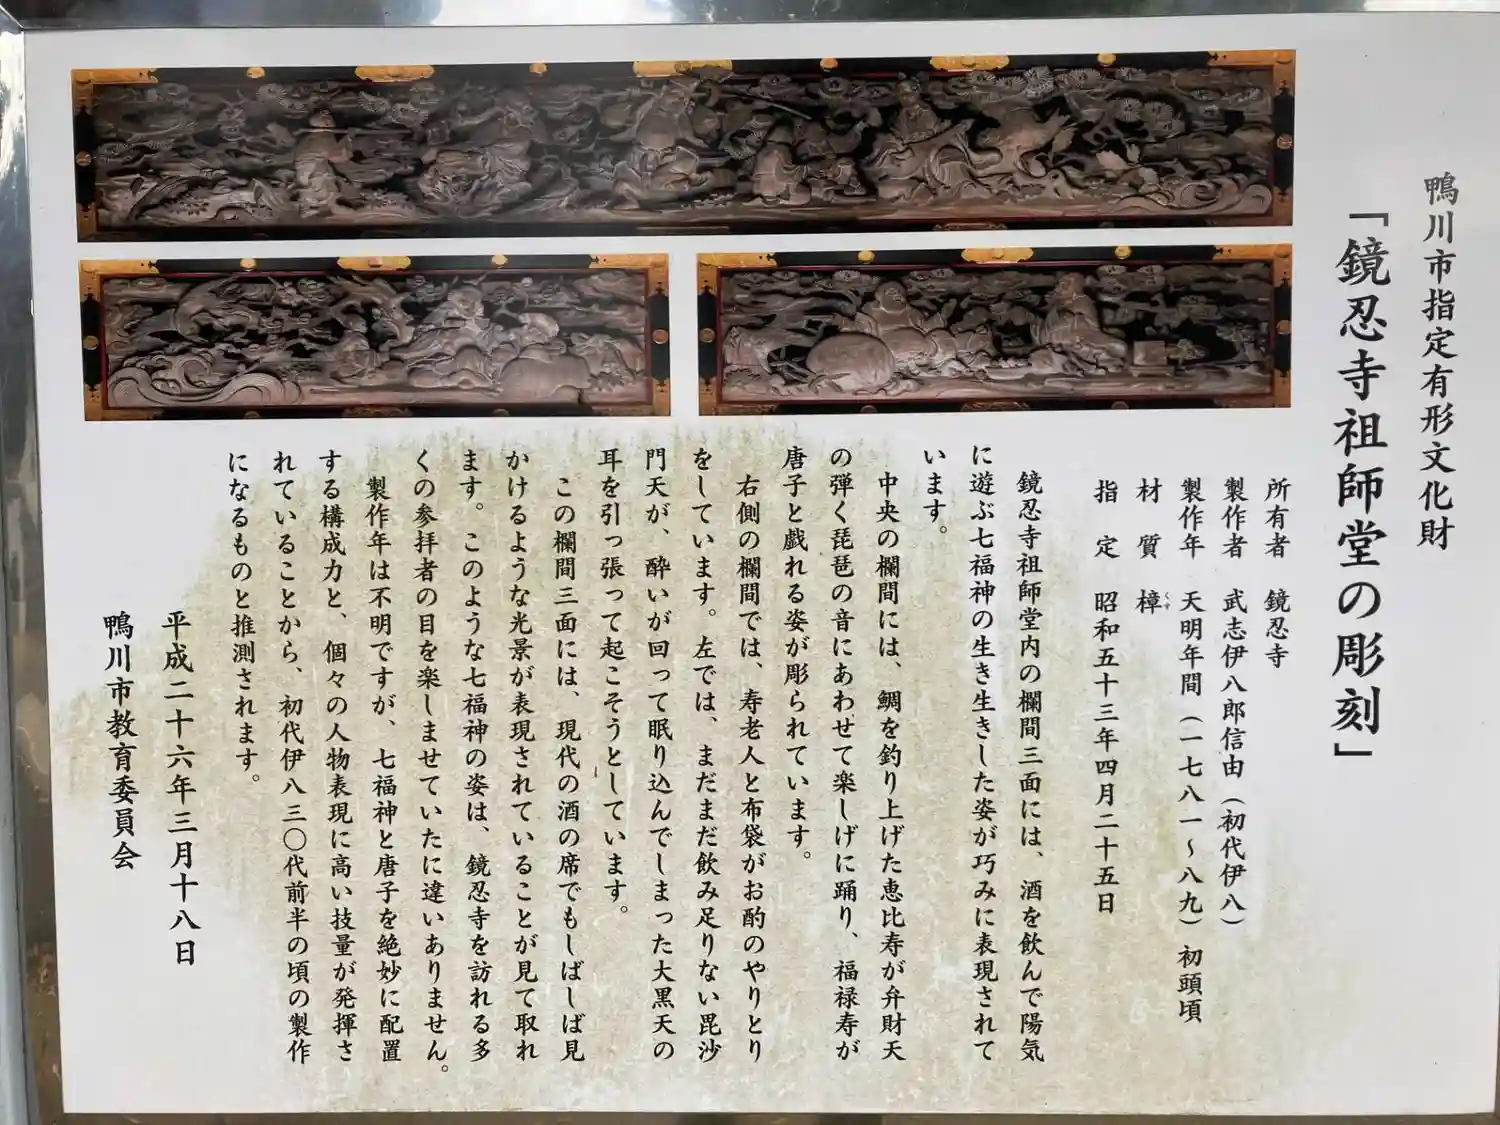 鴨川市指定有形文化財
「鏡忍寺祖師堂の彫刻」
所有者　鏡忍寺
製作者　武志伊八郎信由（初代伊八）
製作年　天明年間（一七八一～八九）初頭頃
材　質　樟くす
指　定　昭和五十三年四月二十五日
鏡忍寺祖師堂内の欄間三面には、酒を飲んで陽気
に遊ぶ七福神の生き生きした姿が巧みに表現されて
います。
中央の欄間には、鯛を釣り上げた恵比寿が弁財天
の弾く琵琶の音にあわせて楽しげに踊り、福禄寿が
唐子と戯れる姿が彫られています。
右側の欄間では、寿老人と布袋がお酌のやりとり
をしています。左では、まだまだ飲み足りない毘沙
門天が、酔いが回って眠り込んでしまった大黒天の
耳を引っ張って起こそうとしています。
この欄間三面には、現代の酒の席でもしばしば見
かけるような光景が表現されていることが見て取れ
ます。このような七福神の姿は、鏡忍寺を訪れる多
くの参拝者の目を楽しませていたに違いありません。
製作年は不明ですが、七福神と唐子を絶妙に配置
する構成力と、個々の人物表現に高い技量が発揮さ
れていることから、初代伊八三〇代前半の頃の製作
になるものと推測されます。
平成二十六年三月十八日
鴨川市教育委員会